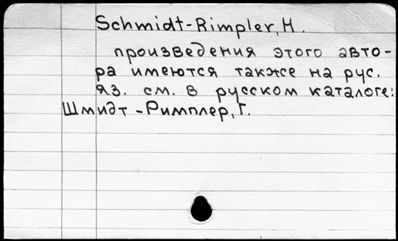 Schmidt-Rimpler, H.
произведения этого авто-
ра имеются также на рус.
яз. см. в русском каталоге:
Шмидт-Римплер, Г.